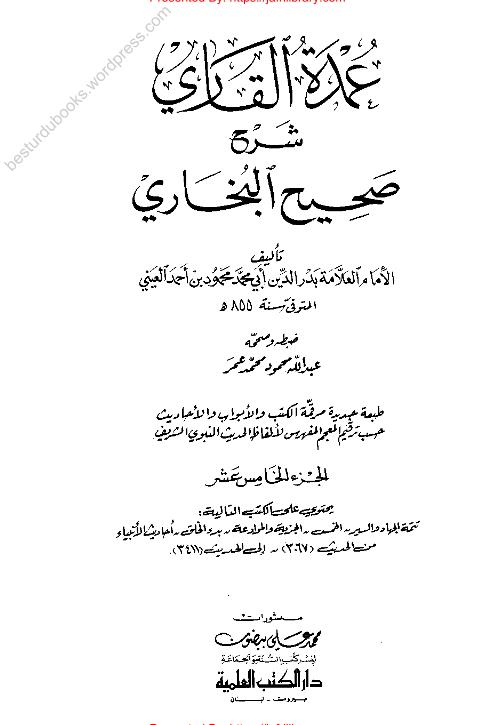 besturdubooks.wordpress.com
عمدة القاري
شرح
صحيح البخاري
تأليف
الإمام العلامة بدر الدين أبي محمد محمود بن أحمد العيني
المتوفى سنة ٨٥٥ هـ
ضبطه وصححه
عبد الله محمود محمد عمر
طبعة جديدة مرقمة الكتب والأبواب والأحاديث
حسب ترقيم المعجم المفهرس لألفاظ الحديث النبوي الشريف
الجزء الخامس عشر
يحتوي على الكتب التالية:
تتمة الجهاد والسير - الخمس - الجزية والموادعة - بدء الخلق - أحاديث الأنبياء
من الحديث (٣٠٦٧) - إلى الحديث (٣٤١١)
منشورات
محمد علي بيضون
لنشر كتب السنة والجماعة
دار الكتب العلمية
بيروت - لبنان